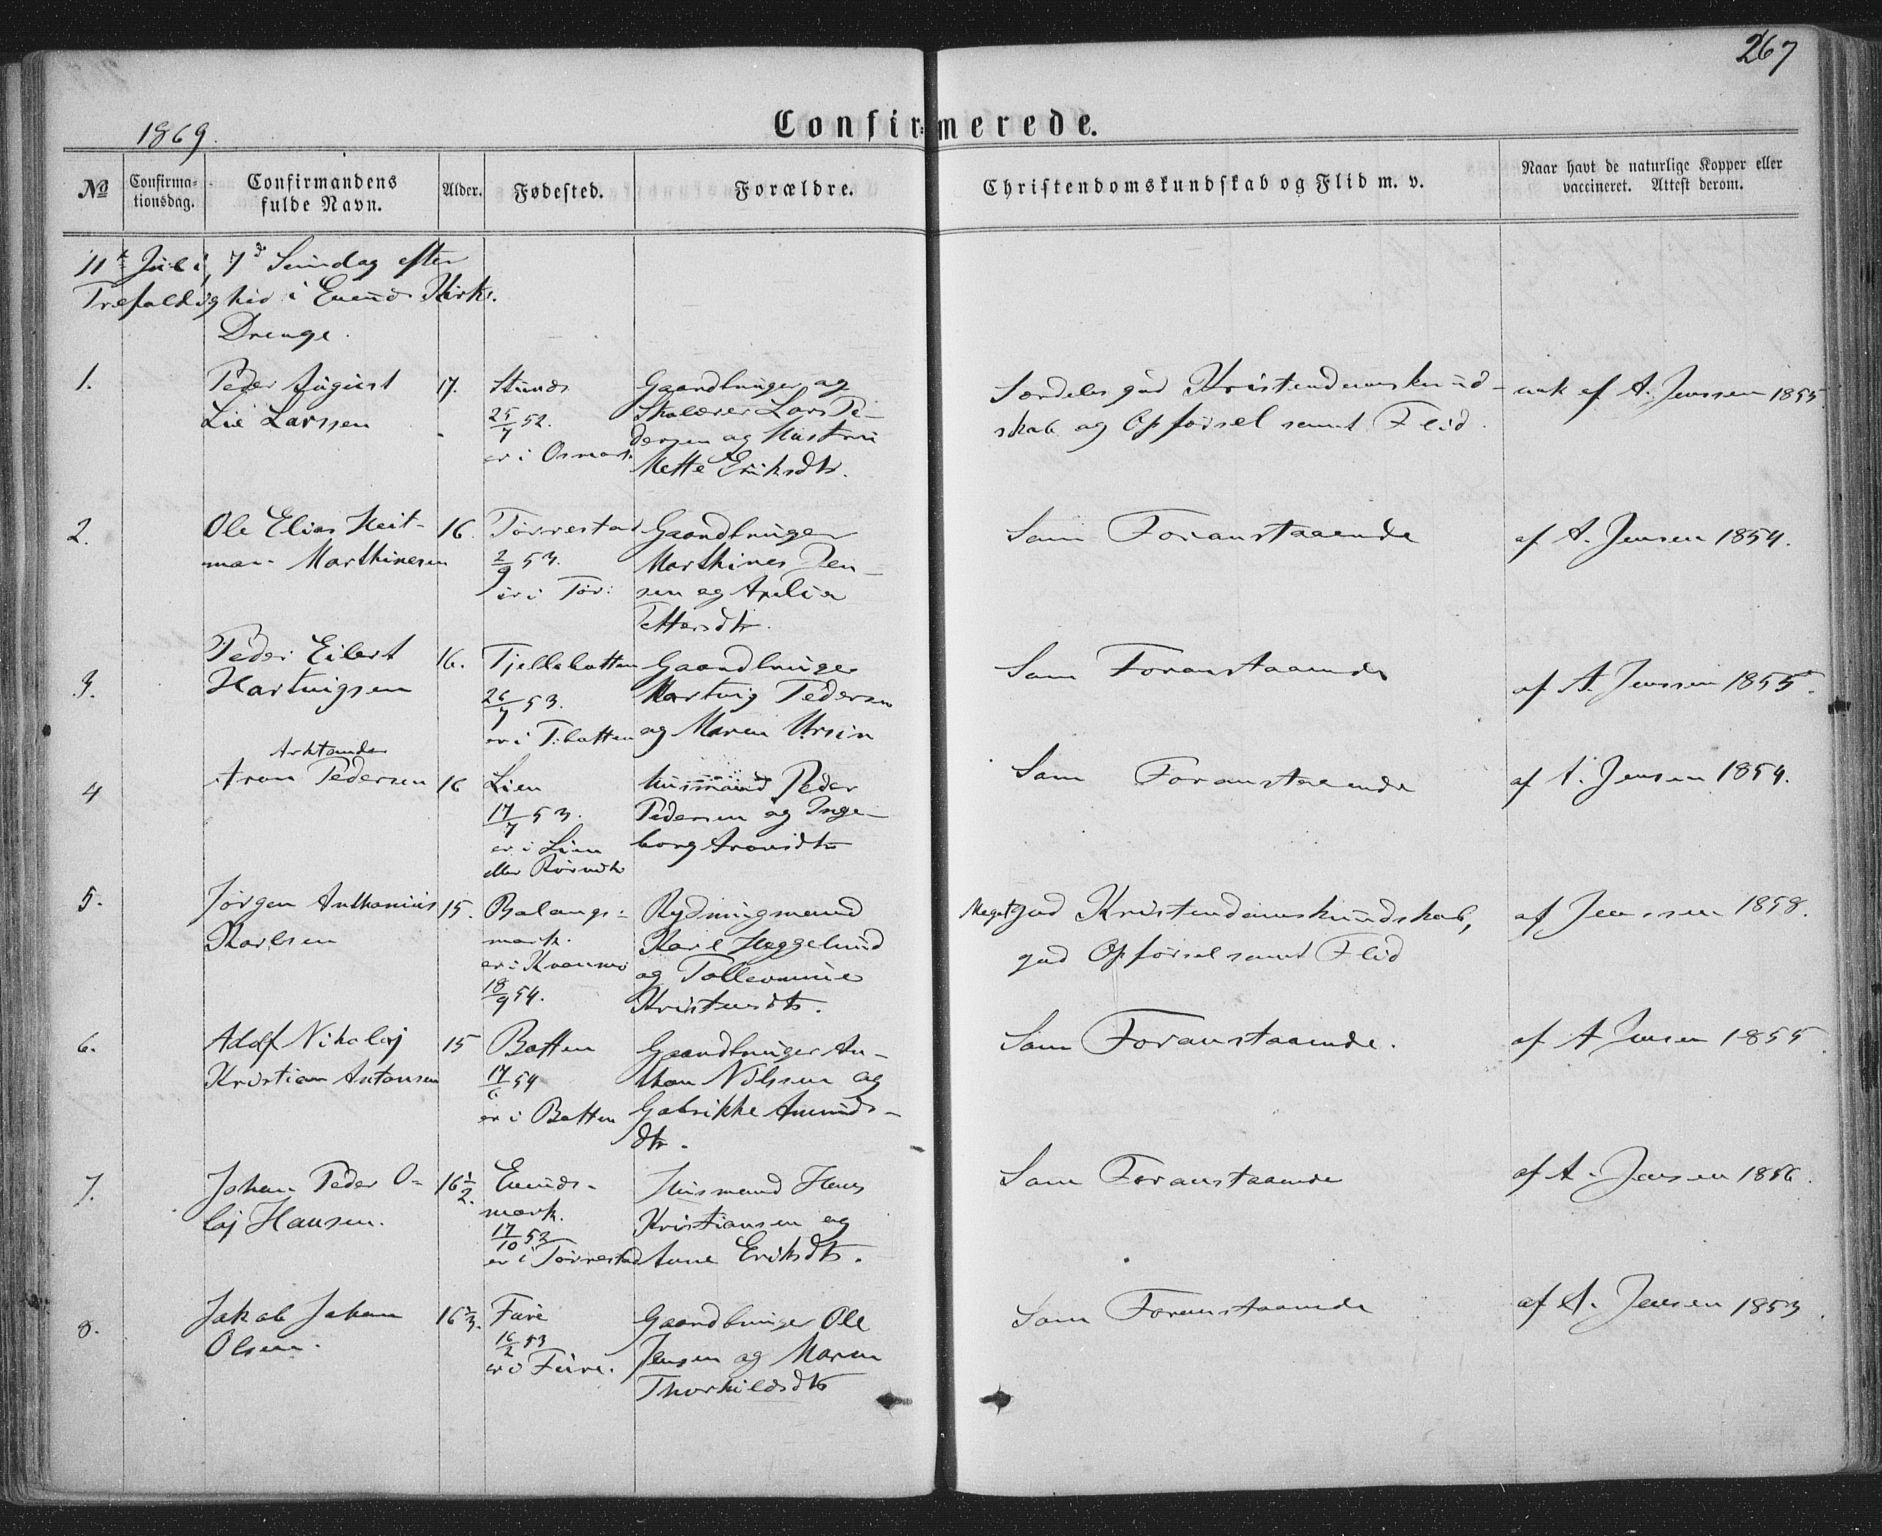 267
1869.
Confirmerede.
No
Confirmationsdag.
Confirmandens fulde Navn.
Alder.
Fødested.
Forældre.
Christendomskundskab og Flid m. v.
Naar havt de naturlige Kopper eller vaccineret. Attest derom.
11te Juli, 7de Søndag efter
Trefoldighed i Kirke.
Drenge.
1.
Peder August
Lie Larssen
17.
25/7 52.
er i
Gaardbruger og
Skolærer Lars Pe-
dersen og Hustru
Mette Eriksdtr.
Særdeles god Kristendomskund-
skab og Opførsel samt Flid.
vak af A. Jenssen 1855.
2.
Ole Elias Heit-
man Marthinesen
16.
Tørrestad
2/9 53.
er i Tør:
Gaardbruger
Marthines Jen-
sen og
Pettersdtr.
Som Foranstaaende
af A. Jensen 1854.
3.
Peder Eilert
Hartvigsen
16.
26/7 53.
er i
Gaardbruger
Hartvig Pedersen
og Maren Ursin
Som Foranstaaende
af A. Jenssen 1855.
4
Arktander
Aron Pedersen
16
Lien
17/7 53.
er i Lien
eller
Husmand Peder
Pedersen og Inge-
borg Aronsdtr
Som Foranstaaende
af A. Jensen 1854.
5.
Jørgen Anthonius
Karlsen
15.
Balangs-
mark.
er i
18/9 54.
Rydningsmand
Karl Heggelund
og
Kristensdtr.
Meget god Kristendomskundskab,
god Opførsel samt Flid
af Jenssen 1858.
6.
Adolf Nikolaj
Kristian Antonsen
15
Botten
17/6 54
er i Botten
Gaardbruger An-
thon Nilssen og
Amunds-
dtr.
Som Foranstaaende.
af A Jensen 1855.
7.
Johan Peder O-
laj Hansen.
16 1/2.
Evends-
mark.
17/10 52
er i Tørrestad
Husmand Hans
Kristiansen og
Anne Eriksdtr.
Som Foranstaaende
af A. Jensen 1856.
8.
Jakob Johan
Olsen.
16 1/3.
Fure
16/2 53
er i Fure.
Gaardbruger Ole
Jensen og Maren
Thorkildsdtr
Som Foranstaaende
af A. Jensen 1853.